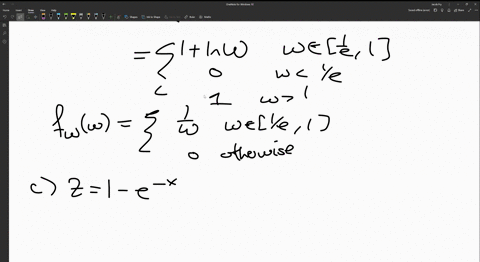 = { 1 + ln w   w ∈ [1/e, 1]
0   w < 1/e
1   w > 1
f_w(w) = { 1/w   w ∈ [1/e, 1]
0 otherwise
c) Z = 1 - e^{-x}